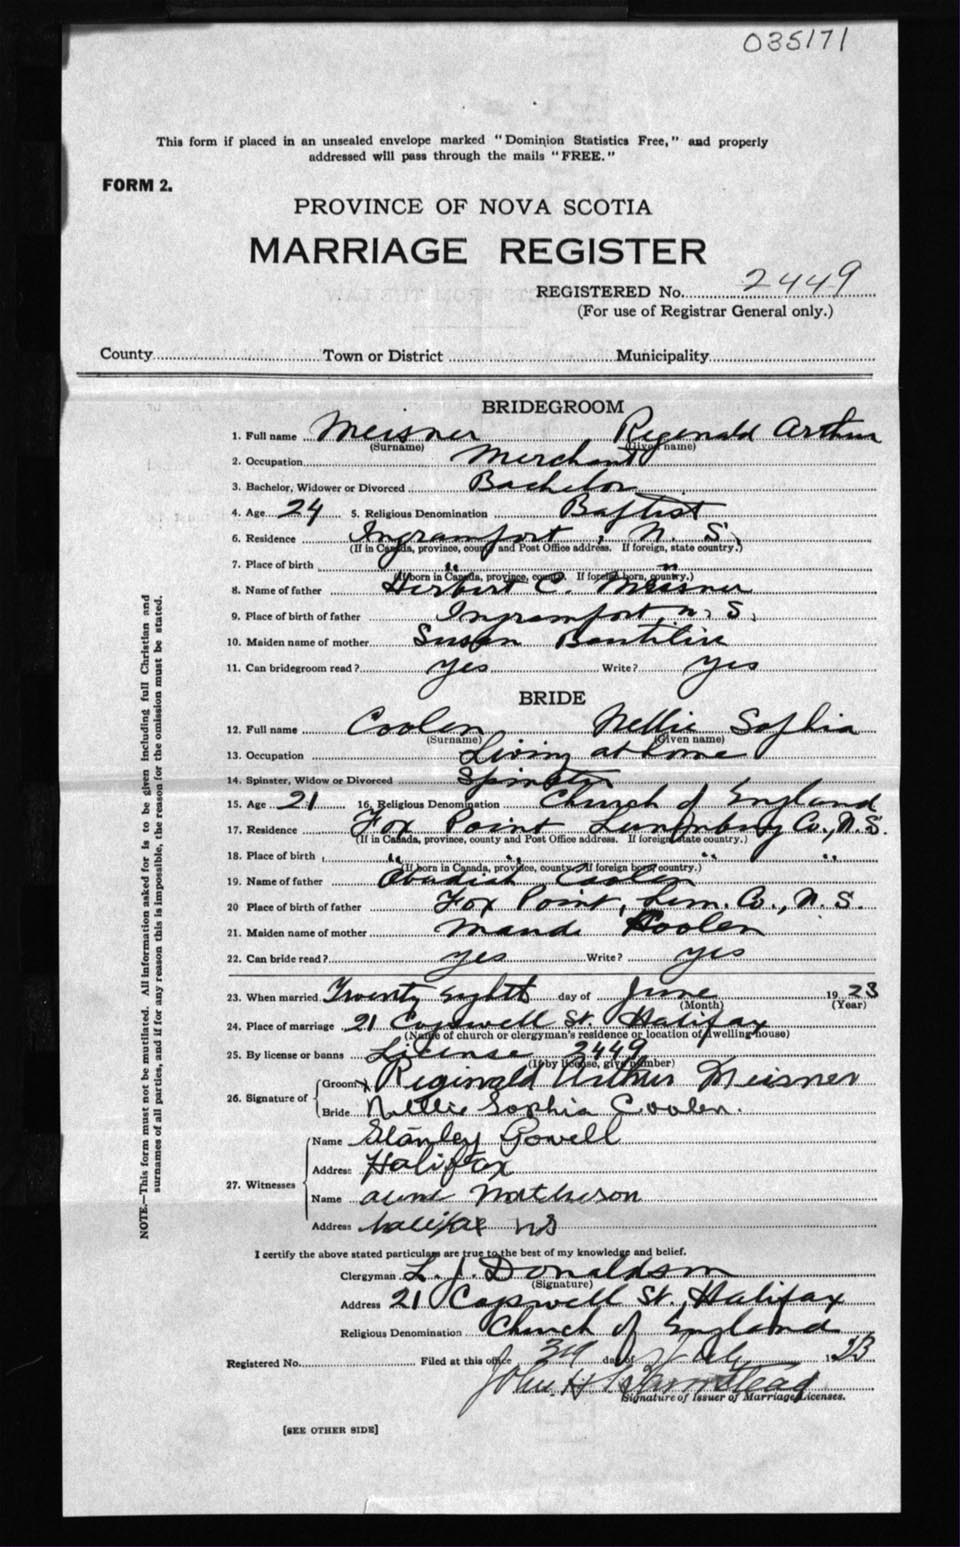 035171
This form if placed in an unsealed envelope marked "Dominion Statistics Free," and properly
addressed will pass through the mails "FREE."
FORM 2.
PROVINCE OF NOVA SCOTIA
MARRIAGE REGISTER
REGISTERED No. 2449
(For use of Registrar General only.)
County Town or District Municipality
BRIDEGROOM
1. Full name Meisner Reginald Arthur
(Surname) (Given name)
2. Occupation Merchant
3. Bachelor, Widower or Divorced Bachelor
4. Age 24 5. Religious Denomination Baptist
6. Residence Ingramport, N. S.
(If in Canada, province, county and Post Office address. If foreign, state country.)
7. Place of birth " "
(If born in Canada, province, county. If foreign born, country.)
8. Name of father Herbert C. Meisner
9. Place of birth of father Ingramport N. S.
10. Maiden name of mother Susan
11. Can bridegroom read? yes Write? yes
BRIDE
12. Full name Coolen Nellie Sophia
(Surname) (Given name)
13. Occupation Living at home
14. Spinster, Widow or Divorced Spinster
15. Age 21 16. Religious Denomination Church of England
17. Residence Fox Point Lunenburg Co., N.S.
(If in Canada, province, county and Post Office address. If foreign state country.)
18. Place of birth " " " "
(If born in Canada, province, county. If foreign born, country.)
19. Name of father Obadiah Coolen
20 Place of birth of father Fox Point, Lun. Co., N. S.
21. Maiden name of mother Maude Coolen
22. Can bride read? yes Write? yes
23. When married Twenty eighth day of June 1923
(Month) (Year)
24. Place of marriage 21 Cogswell St. Halifax
(Name of church or clergyman's residence or location of dwelling-house)
25. By license or banns License 2449
(If by license, give number)
26. Signature of
Groom Reginald Arthur Meisner
Bride Nellie Sophia Coolen.
27. Witnesses
Name Stanley Powell
Address Halifax
Name Matheson
Address halifax NS
I certify the above stated particulars are true to the best of my knowledge and belief.
Clergyman L. J. Donaldson
(Signature)
Address 21 Cogswell St., Halifax
Religious Denomination Church of England
Registered No. Filed at this office day of July 1923
John H
Signature of Issuer of Marriage Licenses.
[SEE OTHER SIDE]
NOTE.—This form must not be mutilated. All information asked for is to be given including full Christian and
surnames of all parties, and if for any reason this is impossible, the reason for the omission must be stated.